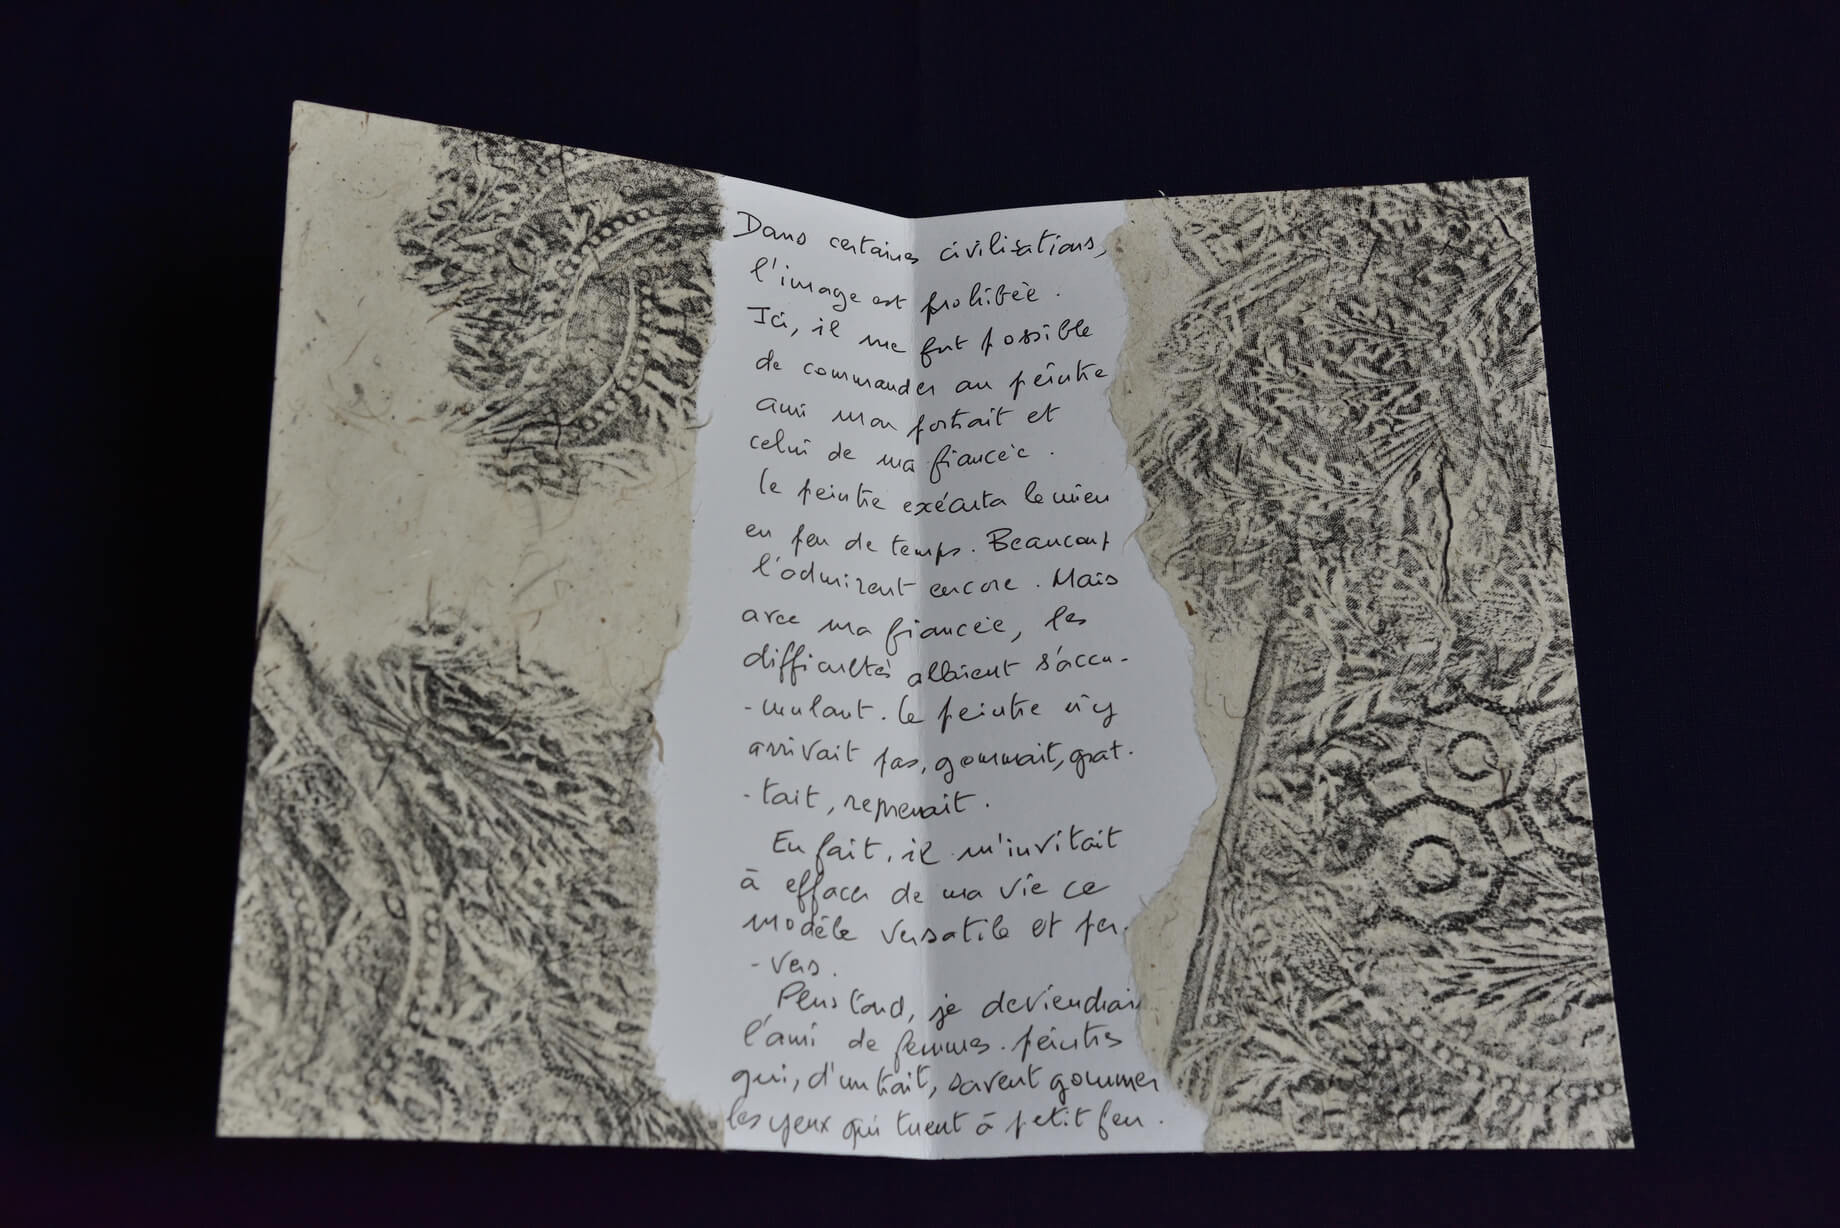 Dans certaines civilisations,
l'image est prohibée.
Ici, il me fut possible
de commander au peintre
ami mon portrait et
celui de ma fiancée.
Le peintre exécuta le mien
en peu de temps. Beaucoup
l'admirent encore. Mais
avec ma fiancée, les
difficultés allaient s'accu-
-mulant. Le peintre n'y
arrivait pas, gommait, grat-
-tait, reprenait.
En fait, il m'invitait
à effacer de ma vie ce
modèle versatile et per-
-vers.
Plus tard, je deviendrais
l'ami de femmes-peintres
qui, d'un trait, savent gommer
les yeux qui tuent à petit feu.